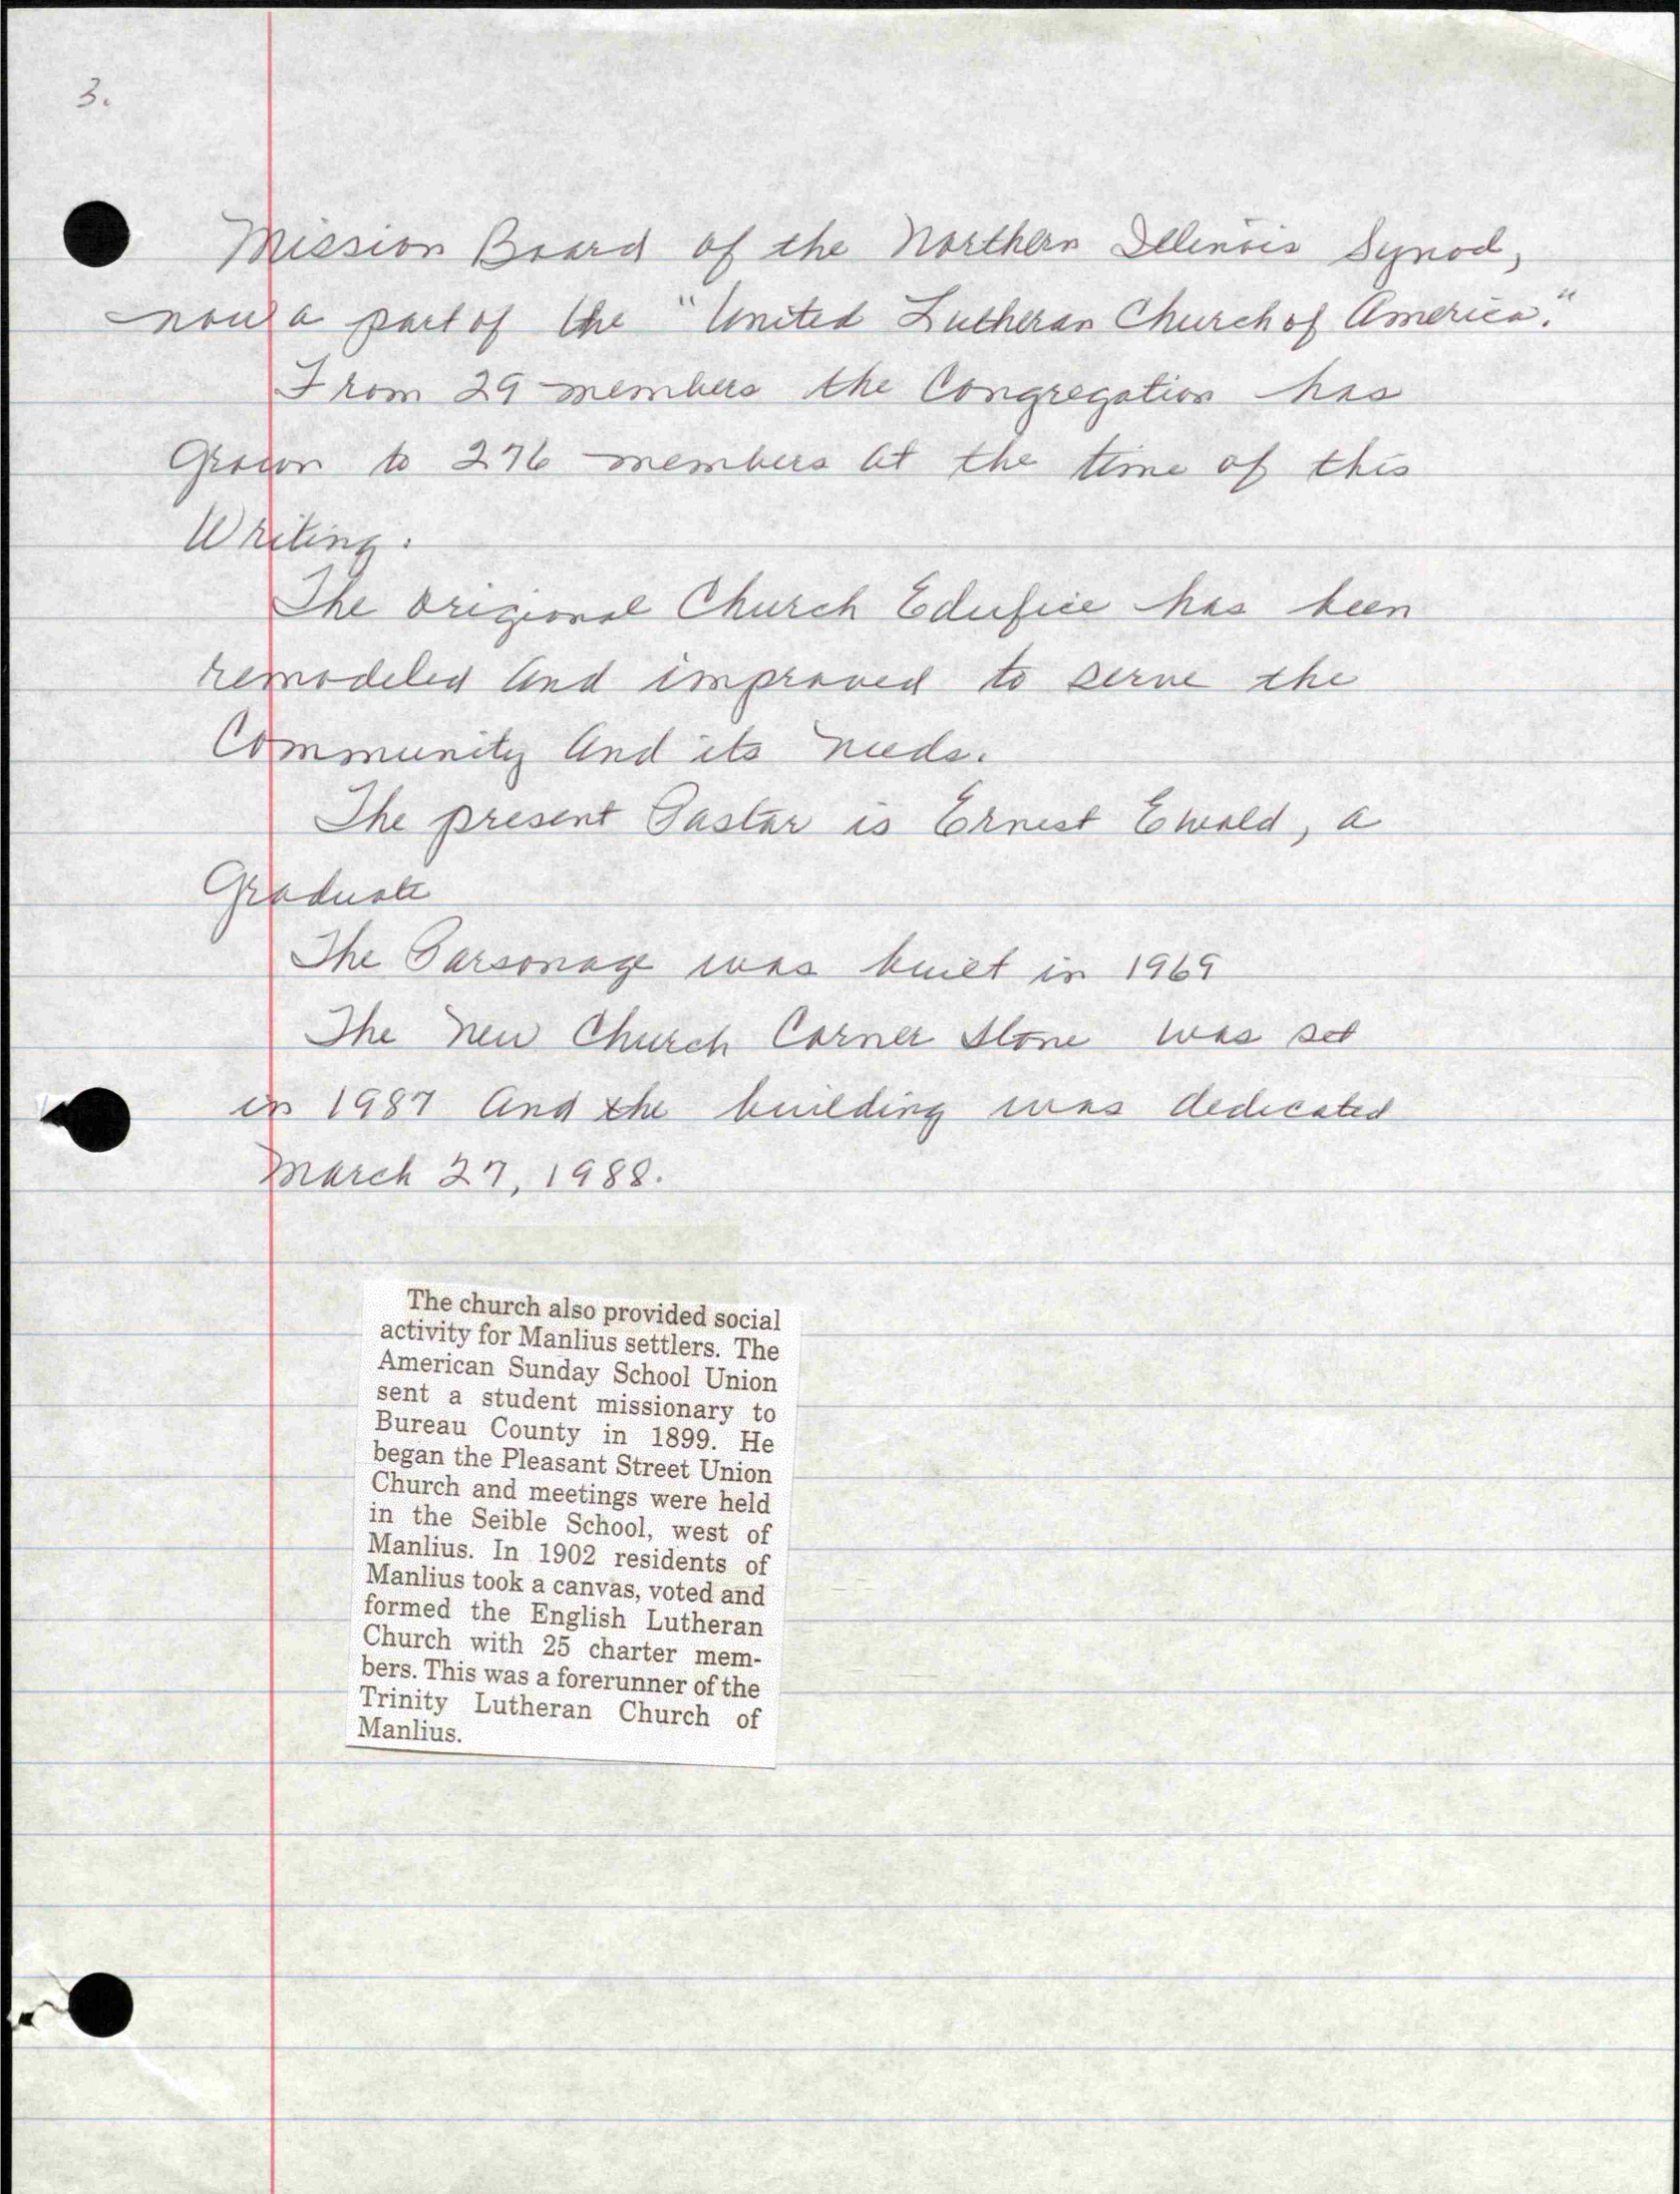 3.
Mission Board of the Northern Illinois Synod,
now a part of the "United Lutheran Church of America."
From 29 members the Congregation has
Grown to 276 members at the time of this
Writing.
The origional Church Edufice has been
remodeled and improved to serve the
Community and its needs.
The present Pastor is Ernest Ewald, a
Graduate
The Parsonage was built in 1969
The New Church Corner Stone was set
in 1987 and the building was dedicated
March 27, 1988.
The church also provided social
activity for Manlius settlers. The
American Sunday School Union
sent a student missionary to
Bureau County in 1899. He
began the Pleasant Street Union
Church and meetings were held
in the Seible School, west of
Manlius. In 1902 residents of
Manlius took a canvas, voted and
formed the English Lutheran
Church with 25 charter mem-
bers. This was a forerunner of the
Trinity Lutheran Church of
Manlius.